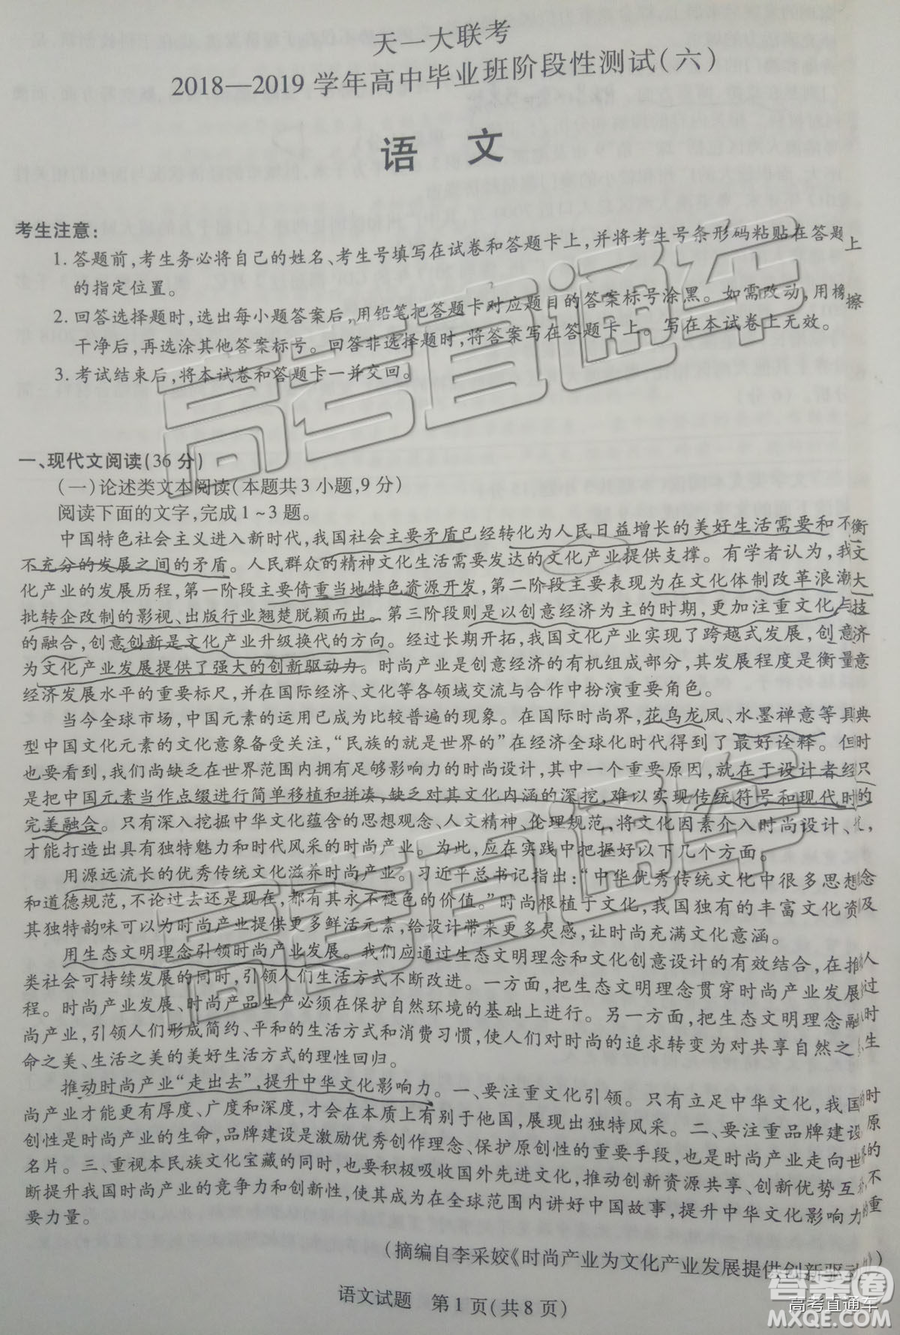 天一大联考
2018—2019学年高中毕业班阶段性测试(六)
语 文
考生注意:
1.答题前,考生务必将自己的姓名、考生号填写在试卷和答题卡上,并将考生号条形码粘贴在答题卡上
的指定位置。
2.回答选择题时,选出每小题答案后,用铅笔把答题卡对应题目的答案标号涂黑。如需改动,用橡皮擦
干净后,再选涂其他答案标号。回答非选择题时,将答案写在答题卡上。写在本试卷上无效。
3.考试结束后,将本试卷和答题卡一并交回。
一、现代文阅读(36分)
(一)论述类文本阅读(本题共3小题,9分)
阅读下面的文字,完成1~3题。
中国特色社会主义进入新时代,我国社会主要矛盾已经转化为人民日益增长的美好生活需要和不平衡
不充分的发展之间的矛盾。人民群众的精神文化生活需要发达的文化产业提供支撑。有学者认为,我国文
化产业的发展历程,第一阶段主要倚重当地特色资源开发,第二阶段主要表现为在文化体制改革浪潮中大
批转企改制的影视、出版行业翘楚脱颖而出。第三阶段则是以创意经济为主的时期,更加注重文化与科技
的融合,创意创新是文化产业升级换代的方向。经过长期开拓,我国文化产业实现了跨越式发展,创意经济
为文化产业发展提供了强大的创新驱动力。时尚产业是创意经济的有机组成部分,其发展程度是衡量创意
经济发展水平的重要标尺,并在国际经济、文化等各领域交流与合作中扮演重要角色。
当今全球市场,中国元素的运用已成为比较普遍的现象。在国际时尚界,花鸟龙凤、水墨禅意等具有典
型中国文化元素的文化意象备受关注,“民族的就是世界的”在经济全球化时代得到了最好诠释。但同时
也要看到,我们尚缺乏在世界范围内拥有足够影响力的时尚设计,其中一个重要原因,就在于设计者经常只
是把中国元素当作点缀进行简单移植和拼凑,缺乏对其文化内涵的深挖,难以实现传统符号和现代时尚的
完美融合。只有深入挖掘中华文化蕴含的思想观念、人文精神、伦理规范,将文化因素介入时尚设计、
才能打造出具有独特魅力和时代风采的时尚产业。为此,应在实践中把握好以下几个方面。
用源远流长的优秀传统文化滋养时尚产业。习近平总书记指出:“中华优秀传统文化中很多思想理念
和道德规范,不论过去还是现在,都有其永不褪色的价值。”时尚根植于文化,我国独有的丰富文化资源及
其独特韵味可以为时尚产业提供更多鲜活元素,给设计带来更多灵感,让时尚充满文化意涵。
用生态文明理念引领时尚产业发展。我们应通过生态文明理念和文化创意设计的有效结合,在推动人
类社会可持续发展的同时,引领人们生活方式不断改进。一方面,把生态文明理念贯穿时尚产业发展全过
程。时尚产业发展、时尚产品生产必须在保护自然环境的基础上进行。另一方面,把生态文明理念融入时
尚产业,引领人们形成简约、平和的生活方式和消费习惯,使人们对时尚的追求转变为对共享自然之美、生
命之美、生活之美的美好生活方式的理性回归。
推动时尚产业“走出去”,提升中华文化影响力。一、要注重文化引领。只有立足中华文化,我国时
尚产业才能更有厚度、广度和深度,才会在本质上有别于他国,展现出独特风采。二、要注重品牌建设。原
创性是时尚产业的生命,品牌建设是激励优秀创作理念、保护原创性的重要手段,也是时尚产业走向世界的
名片。三、重视本民族文化宝藏的同时,也要积极吸收国外先进文化,推动创新资源共享、创新优势互补,不
断提升我国时尚产业的竞争力和创新性,使其成为在全球范围内讲好中国故事,提升中华文化影响力的重
要力量。
(摘编自李采姣《时尚产业为文化产业发展提供创新驱动》)
语文试题 第1页(共8页)
高考直通车
高考直通车
答案圈
高考直通车
MXQE.COM